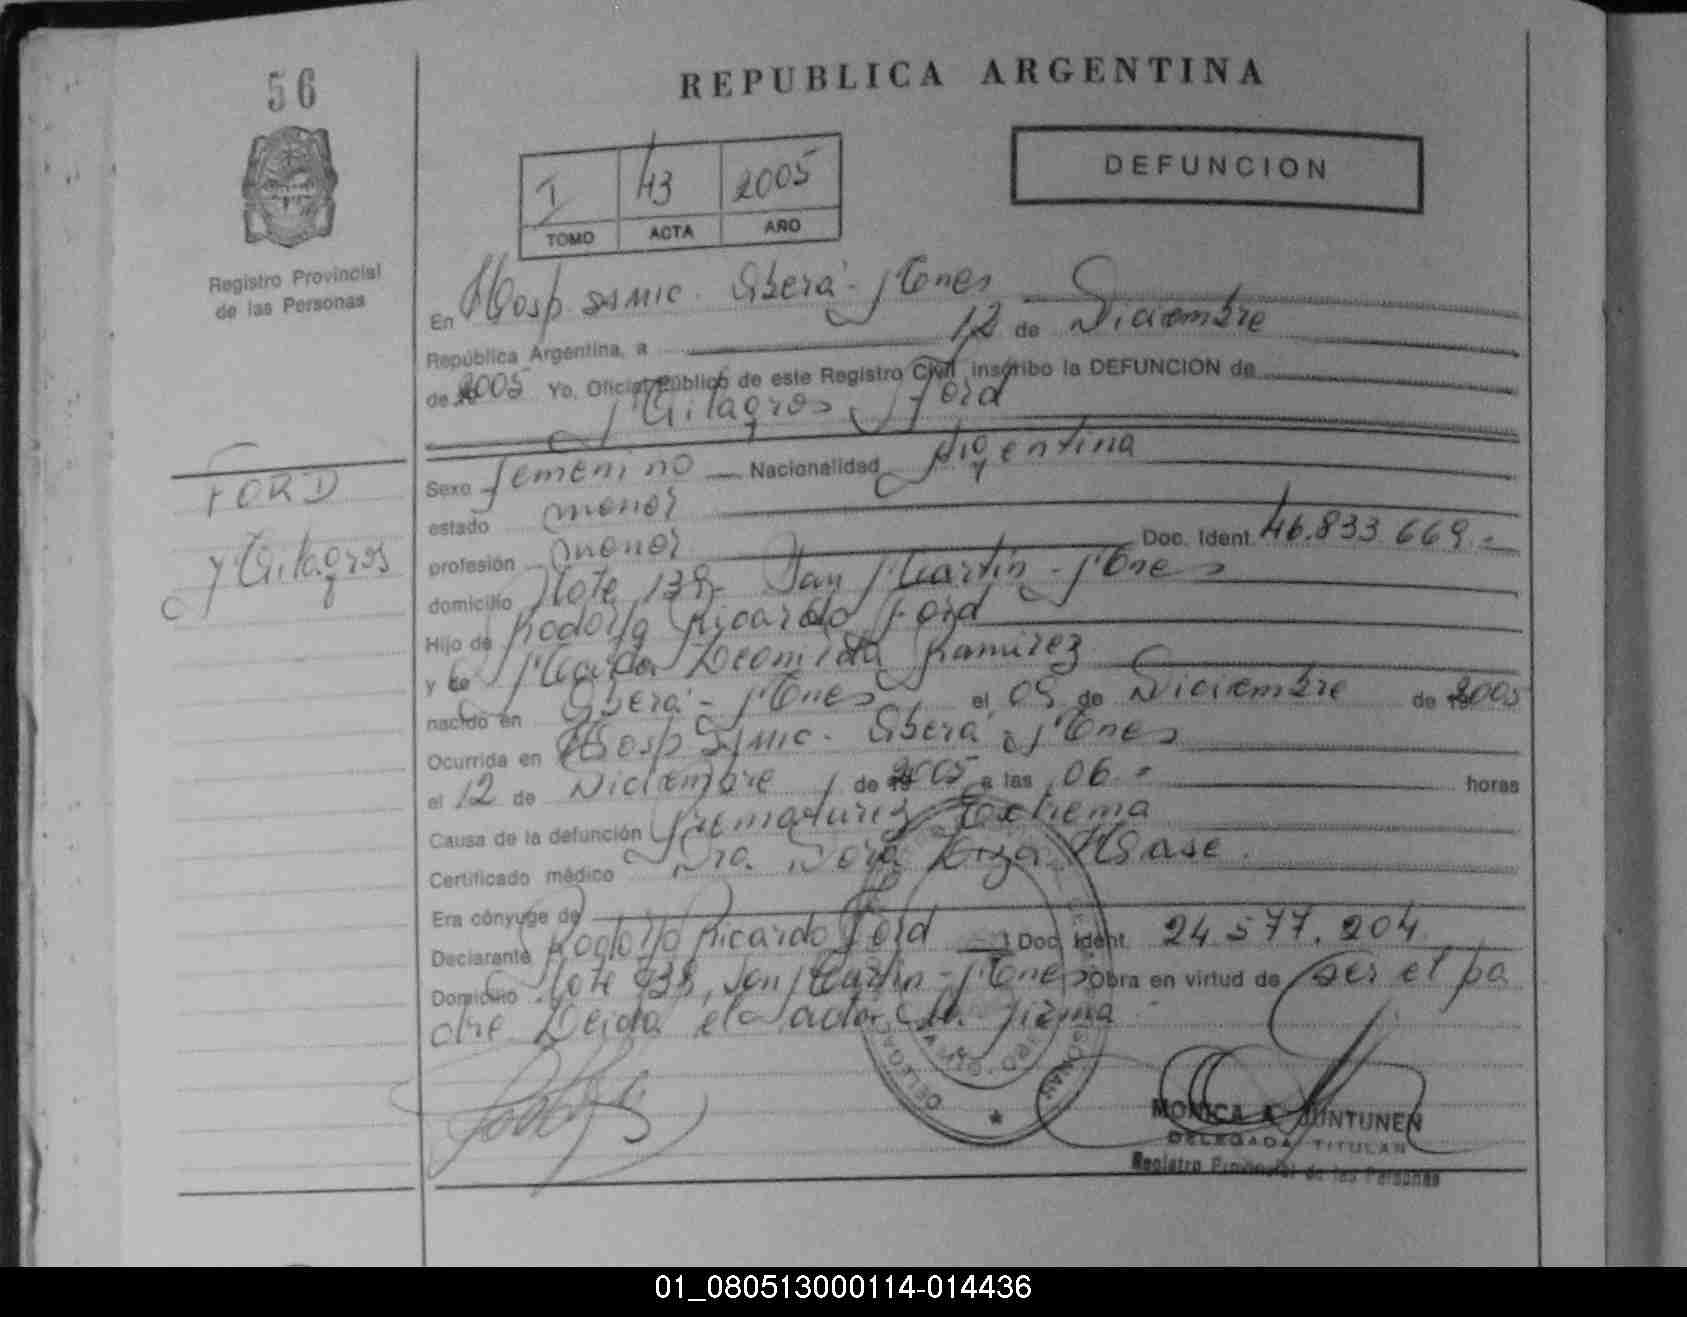 56
REPUBLICA ARGENTINA
DEFUNCION
I 43 2005
TOMO ACTA AÑO
Registro Provincial
de las Personas
En Hosp. SAMIC. Oberá - Mnes
República Argentina, a 12 de Diciembre
de 2005 Yo, Oficial Público de este Registro Civil, inscribo la DEFUNCION de
Milagros Ford
FORD
Milagros
Sexo femenino Nacionalidad Argentina
estado menor
profesión menor Doc. Ident. 46.833 669.-
domicilio San Martín - Mnes
Hijo de Rodolfo Ricardo Ford
y de Ramirez
nacido en Oberá - Mnes el 05 de Diciembre de 2005
Ocurrida en Hosp SAMIC. Oberá Mnes
el 12 de Diciembre de 2005 a las 06.- horas
Causa de la defunción Prematurez Extrema
Certificado médico Dra. Dora
Era cónyuge de
Declarante Rodolfo Ricardo Ford Doc. Ident. 24.577.204
Domicilio San Martín - Mnes Obra en virtud de ser el pa
dre Leida el acta firma
MONICA A. JUNTUNEN
DELEGADA TITULAR
Registro Provincial de las Personas
01_080513000114-014436